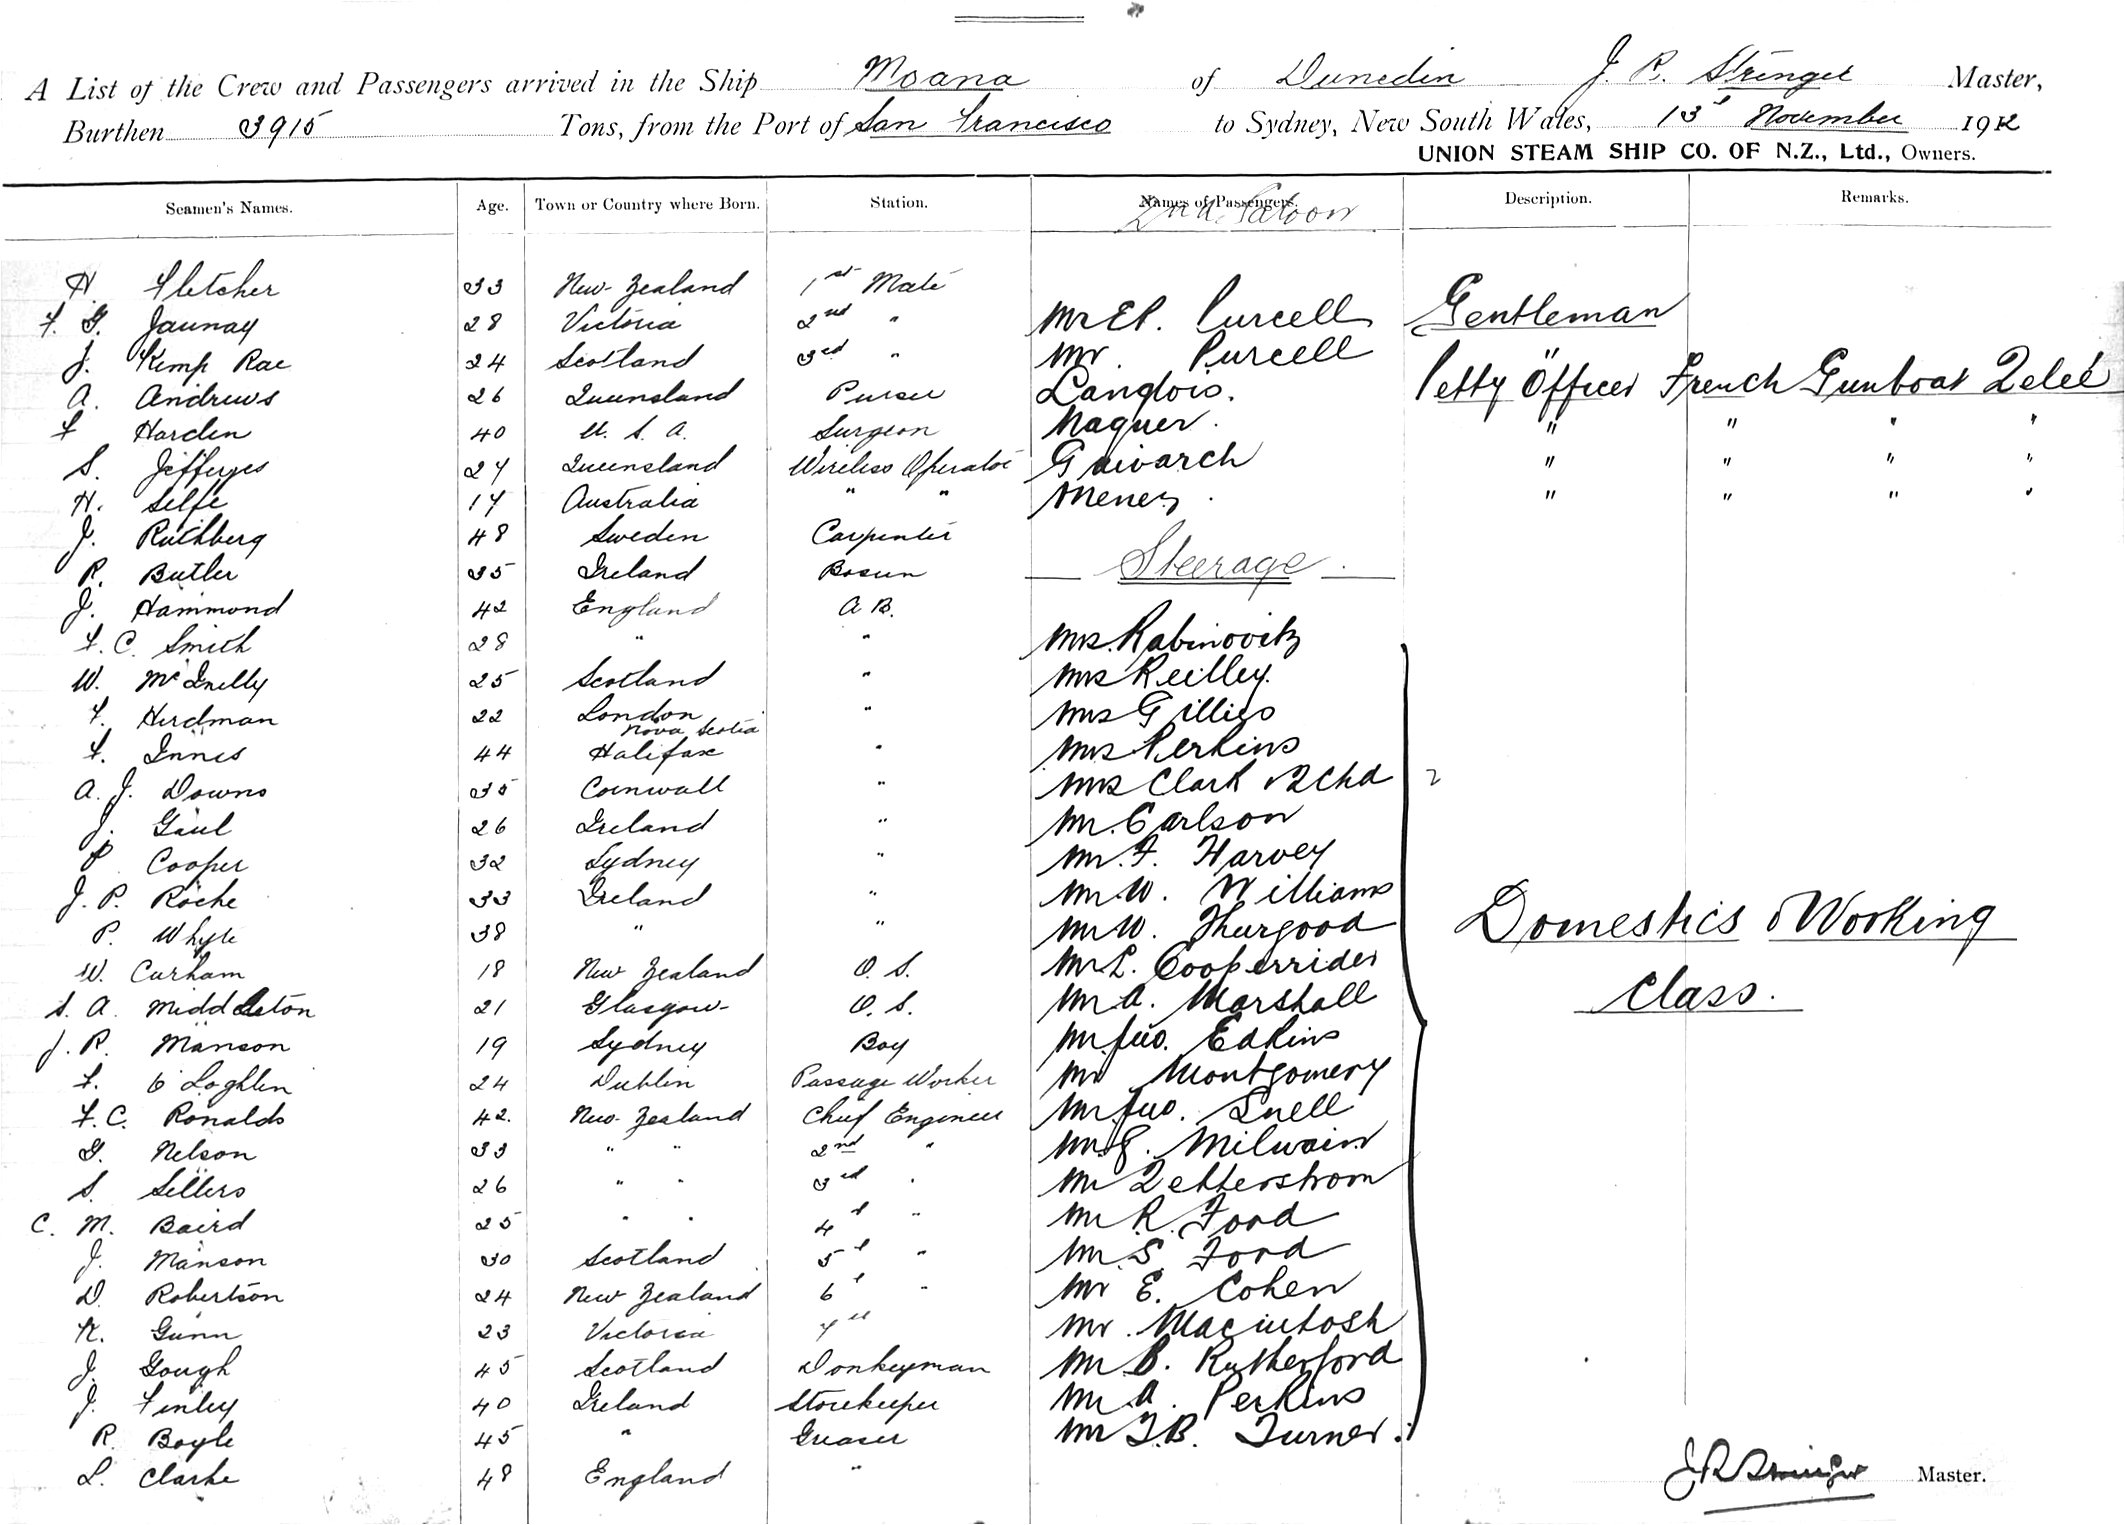 A List of the Crew and Passengers arrived in the Ship Moana of Dunedin J. R. Stringer Master,
Burthen 3915 Tons, from the Port of San Francisco to Sydney, New South Wales, 13th November 1912
UNION STEAM SHIP CO. OF N.Z., Ltd., Owners.
Seamen's Names. Age. Town or Country where Born. Station. Names of Passengers. Description. Remarks.
2nd Saloon
H. Fletcher 33 New Zealand 1st Mate
F. G. Jaunay 28 Victoria 2nd " Mr E P. Purcell Gentleman
J. Kemp Rae 24 Scotland 3rd " Mr. Purcell "
A. Andrews 26 Queensland Purser Langlois. Petty Officer French Gunboat Zeleé
F Harden 40 U. S. A. Surgeon Naguer. " " " "
S. Jefferyes 27 Queensland Wireless Operator Guivarch " " " "
H. Selfe 17 Australia " " Menez. " " " "
J. Ruthberg 48 Sweden Carpenter
R. Butler 35 Ireland Bosun Steerage
J. Hammond 42 England A B.
F. C. Smith 28 " " Mrs. Rabinovitz
W. McInelly 25 Scotland " Mrs Reilley.
F. Herdman 22 London " Mrs Gillies
F. Innes 44 Halifax Nova Scotia " Mrs Perkins
A. J. Downs 35 Cornwall " Mrs Clark & 2 Chd
J. Gaul 26 Ireland " Mr. Carlson
P Cooper 32 Sydney " Mr. F. Harvey
J. P. Roche 33 Ireland " Mr W. Williams
P. Whyte 38 " " Mr W. Thurgood Domestics & Working
W. Curham 18 New Zealand O. S. Mr L. Cooperrider
S. A. Middleton 21 Glasgow O. S. Mr A. Marshall Class.
J. R. Manson 19 Sydney Boy Mr. Jno. Edkins
F. O'Loghlin 24 Dublin Passage Worker Mr Montgomery
F. C. Ronalds 42. New Zealand Chief Engineer Mr Jno. Snell
G. Nelson 33 " " 2nd " Mr J. Milwain
S. Sellers 26 " " 3rd " Mr Zetterstrom
C. M. Baird 25 " " 4th " Mr R. Ford
J. Manson 30 Scotland 5th " Mr. S. Ford
D. Robertson 24 New Zealand 6th " Mr E. Cohen
K. Gunn 23 Victoria 7th Mr. Macintosh
J. Gough 45 Scotland Donkeyman Mr B. Rutherford
J. Finley 40 Ireland Storekeeper Mr A. Perkins
R. Boyle 45 " Greaser Mr T. B. Turner.
L. Clarke 48 England " J R Stringer Master.